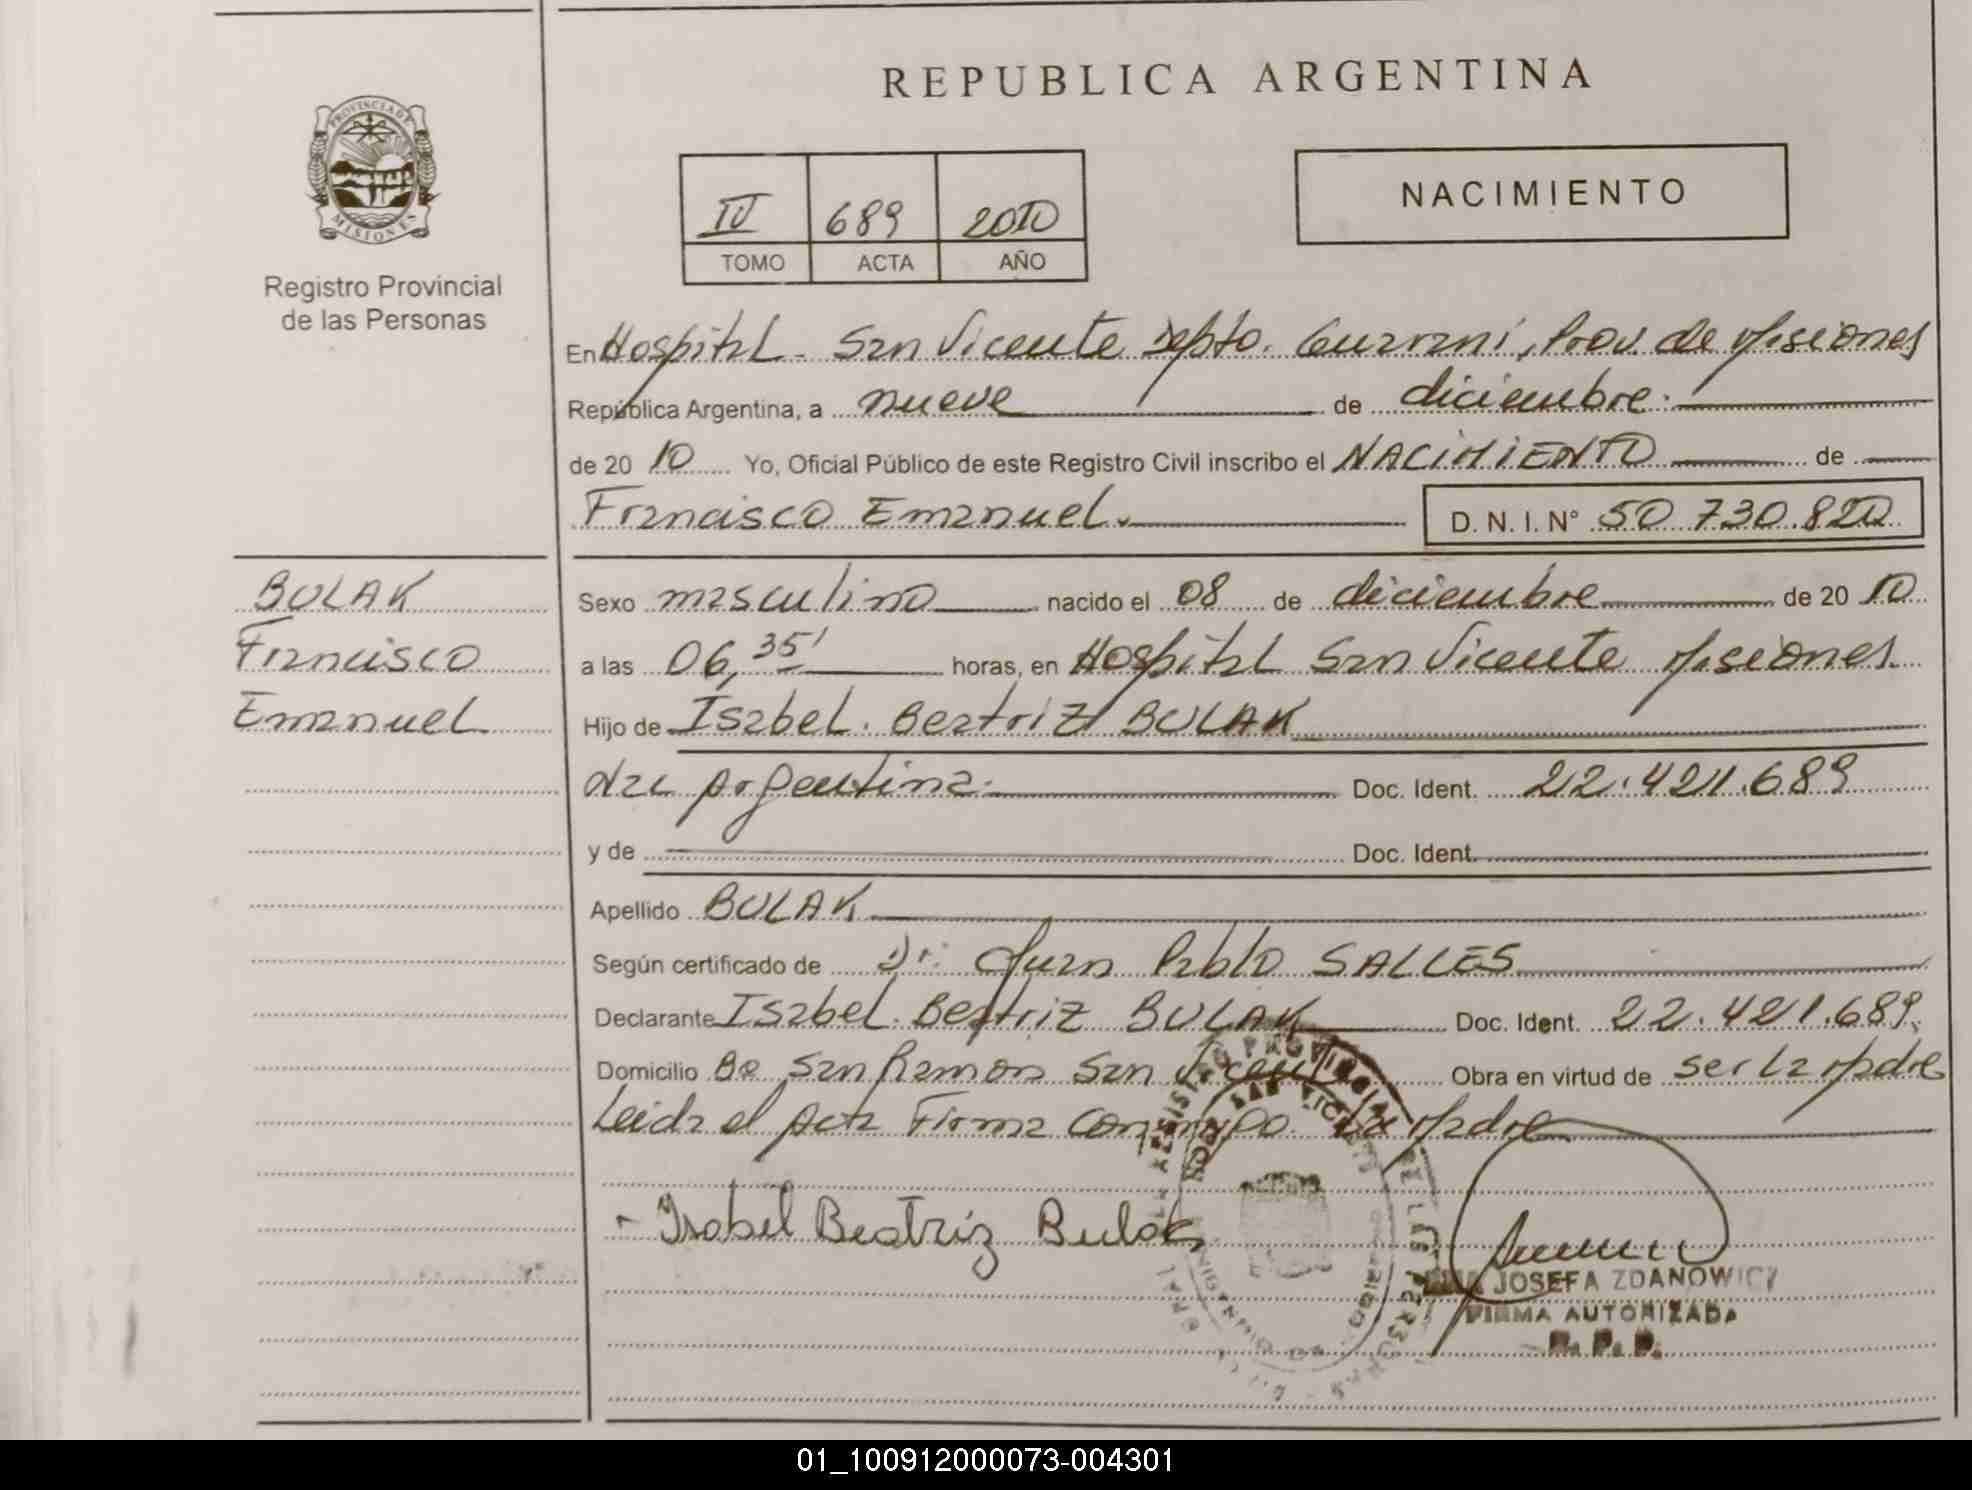 REPUBLICA ARGENTINA
PROVINCIA DE MISIONES
Registro Provincial
de las Personas
IV 689 2010
TOMO ACTA AÑO
NACIMIENTO
En Hospital - San Vicente Depto. Guarani, Prov. de Misiones
República Argentina, a nueve de diciembre.
de 20 10 Yo, Oficial Público de este Registro Civil inscribo el NACIMIENTO de
Francisco Emanuel. D. N. I. N° 50 730.820
BULAK
Francisco
Emanuel
Sexo masculino nacido el 08 de diciembre de 20 10
a las 06,35' horas, en Hospital San Vicente Misiones
Hijo de Isabel. Beatriz BULAK
Nac Argentina. Doc. Ident. 22.421.689
y de Doc. Ident.
Apellido BULAK
Según certificado de Dr. Juan Pablo SALLES
Declarante Isabel. Beatriz BULAK Doc. Ident. 22.421.689.
Domicilio Bº San Ramon San Vicente Obra en virtud de ser la Madre
Leida el Acta Firma Conmigo La Madre
- Isabel Beatriz Bulak
JOSEFA ZDANOWICZ
FIRMA AUTORIZADA
R. P. P.
01_100912000073-004301